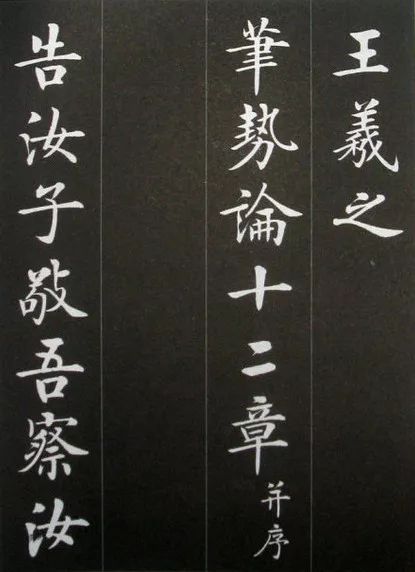 王羲之
筆勢論十二章并序
告汝子敬吾察汝